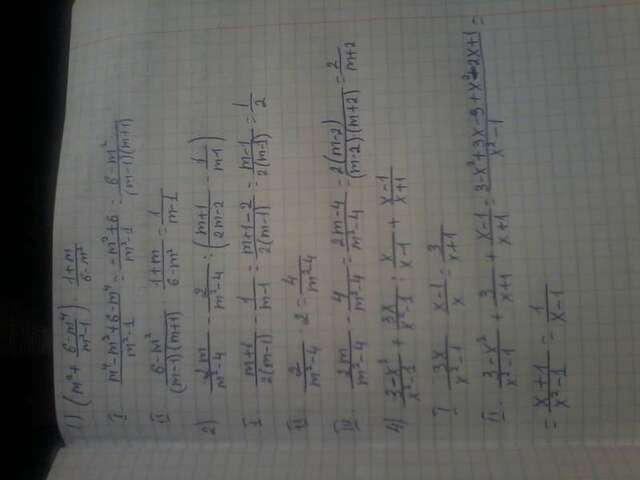 1) (m² + (6-m⁴)/(m²-1)) · (1+m)/(6-m²)
I. (m⁴-m²+6-m⁴)/(m²-1) = (-m²+6)/(m²-1) = (6-m²)/((m-1)(m+1))
II. (6-m²)/((m-1)(m+1)) · (1+m)/(6-m²) = 1/(m-1)
2) m/(m²-4) - 2/(m²-4) : ((m+1)/(2m-2) - 1/(m-1))
I. (m+1)/(2(m-1)) - 1/(m-1) = (m+1-2)/(2(m-1)) = (m-1)/(2(m-1)) = 1/2
II. 2/(m²-4) · 2 = 4/(m²-4)
III. 2m/(m²-4) - 4/(m²-4) = (2m-4)/(m²-4) = 2(m-2)/((m-2)(m+2)) = 2/(m+2)
4) (3-x²)/(x²-1) + 3x/(x²-1) : x/(x-1) + (x-1)/(x+1)
I. 3x/(x²-1) · (x-1)/x = 3/(x+1)
II. (3-x²)/(x²-1) + 3/(x+1) + (x-1)/(x+1) = (3-x²+3x-3+x²-2x+1)/(x²-1) =
= (x+1)/(x²-1) = 1/(x-1)